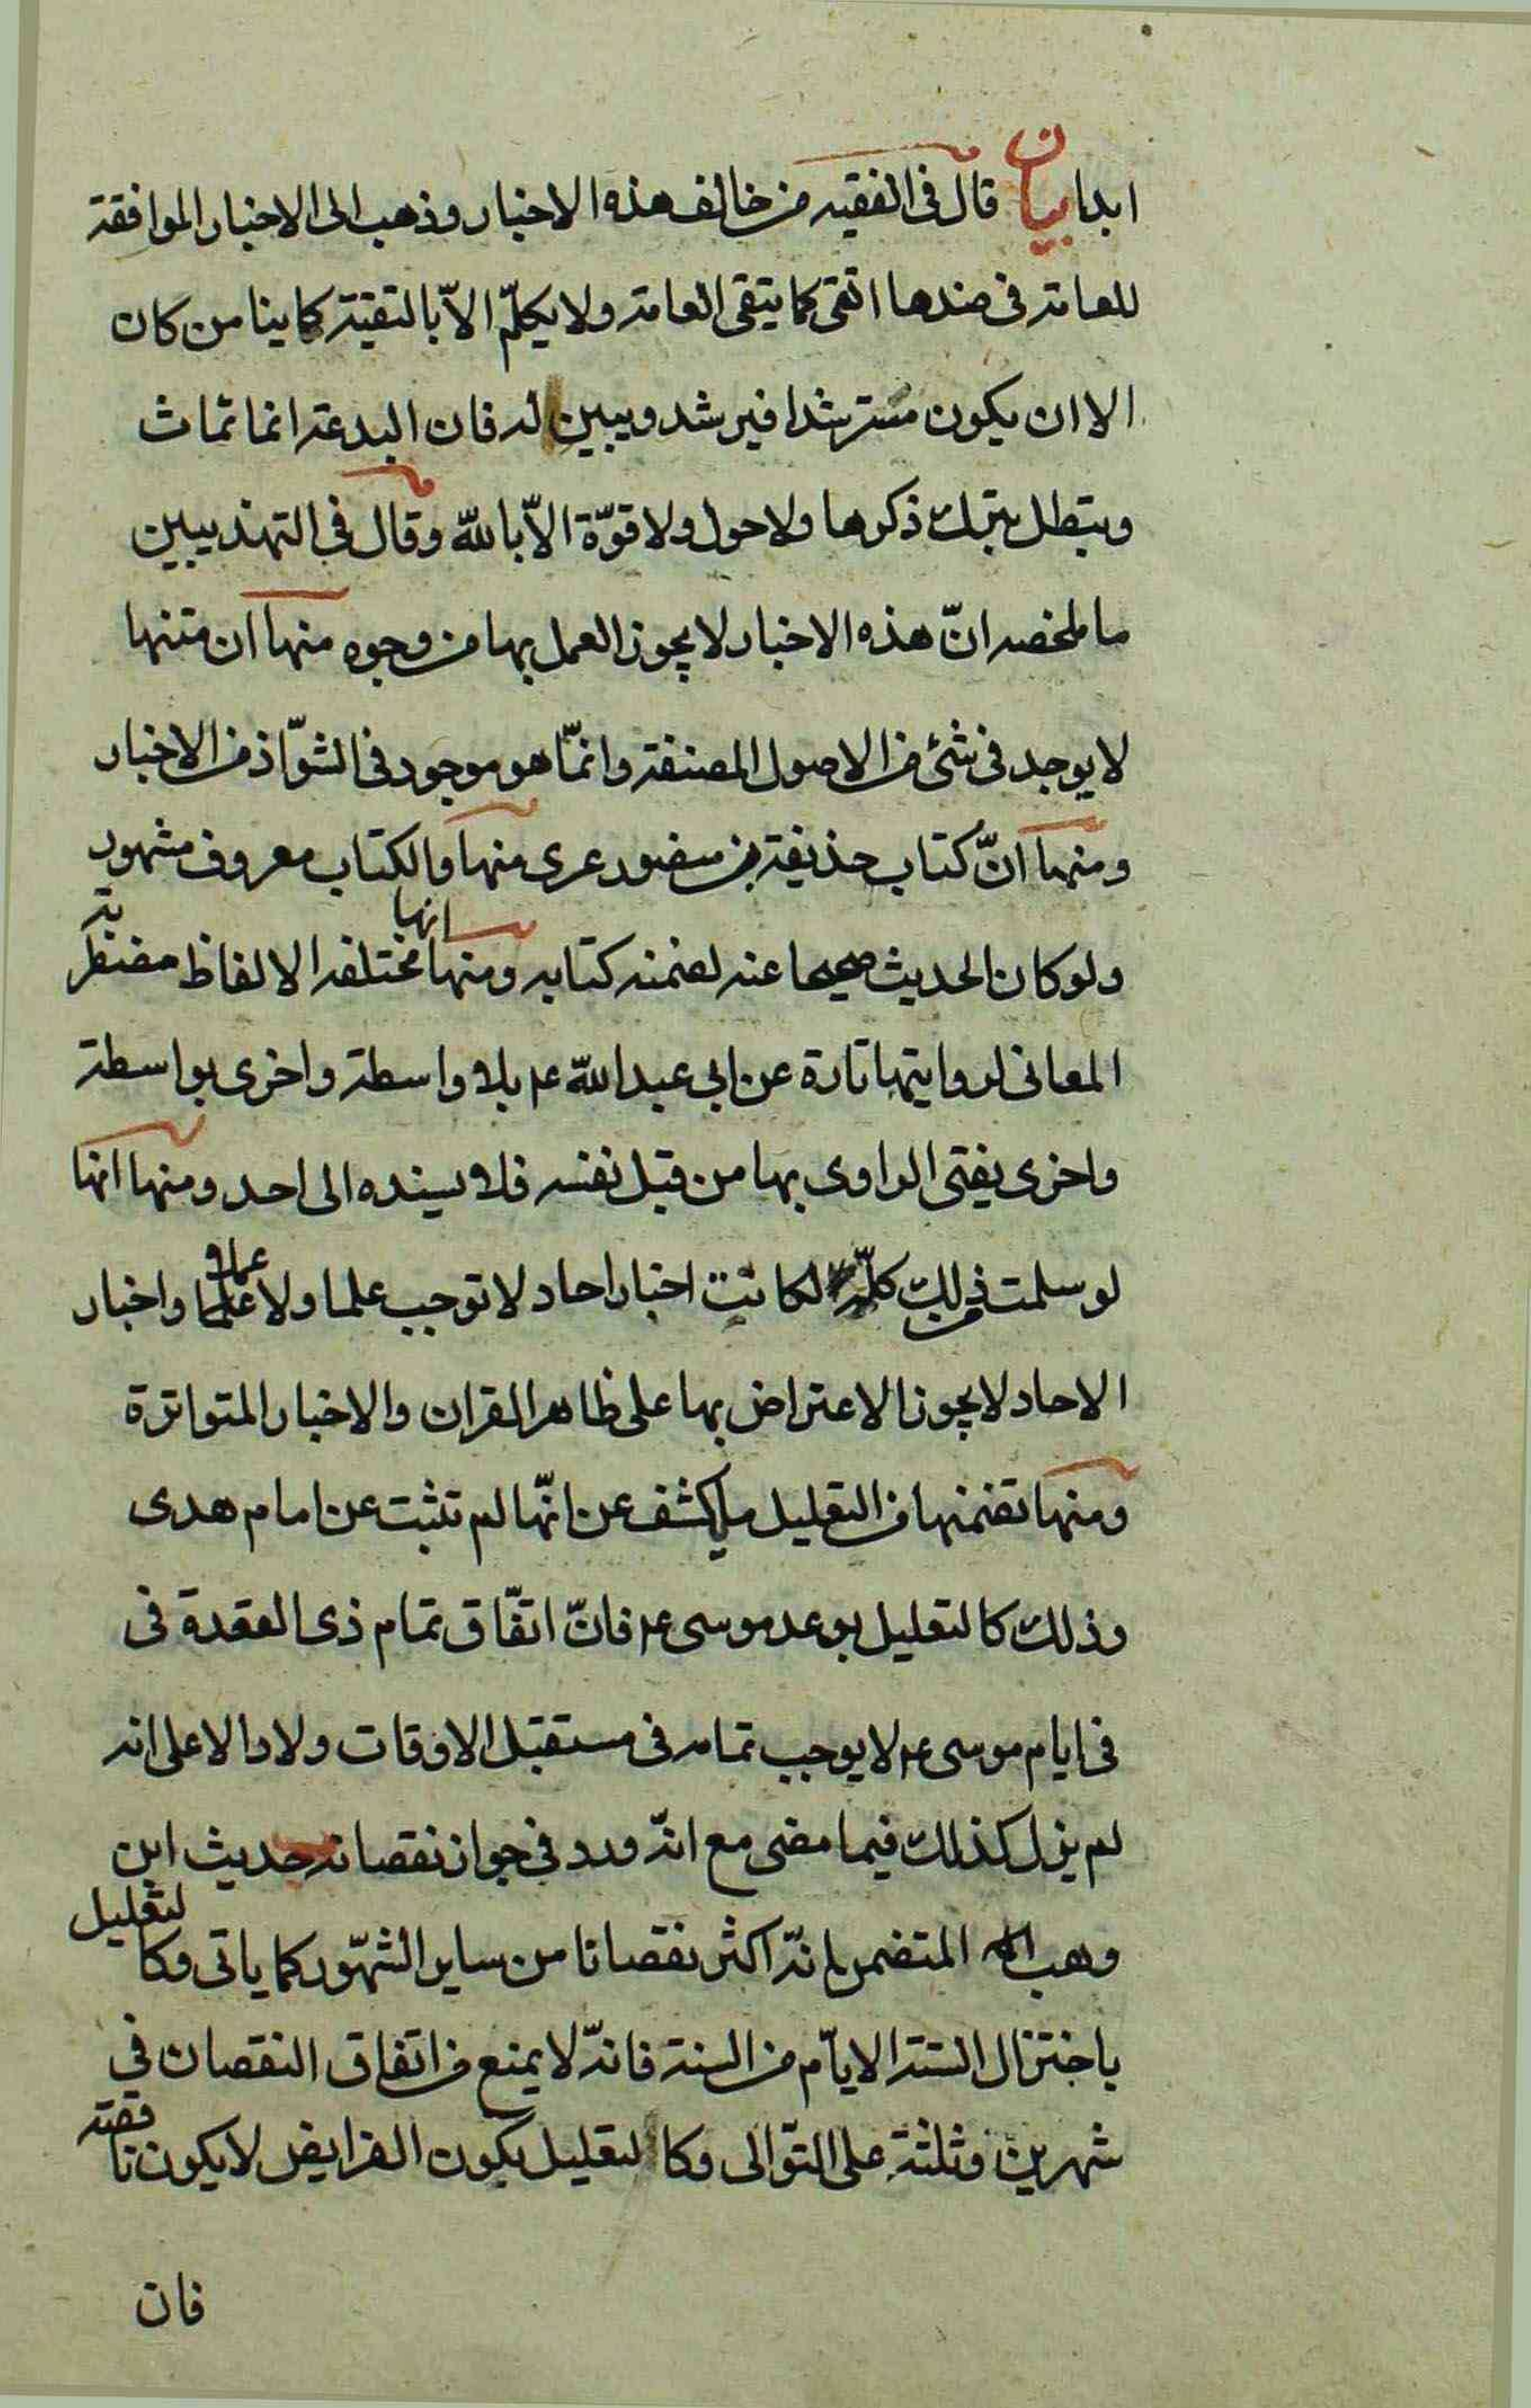 ابدا بيان قال في الفقيه من خالف هذه الاخبار وذهب الى الاخبار الموافقة
للعامة في ضدها اتقى كما يتقى العامة ولا يكلّم الاّ بالتقية كاينا من كان
الا ان يكون مسترشدا فيرشد ويبين له فان البدعة انما تماث
ويتطل بترك ذكرها ولا حول ولا قوّة الاّ بالله وقال في التهذيبين
ما ملخصه انّ هذه الاخبار لا يجوز العمل بها من وجوه منها ان متنها
لا يوجد في شئ من الاصول المصنفة وانمّا هو موجود في الشوّاذ من الاخبار
ومنها انّ كتاب حذيفة بن منصور عرى منها والكتاب معروف مشهور
ولو كان الحديث صحيحا عنه لضمنه كتابه ومنها انها مختلفه الالفاظ مضطربة
المعاني لروايتها تارة عن ابي عبد الله ع بلا واسطة واخرى بواسطة
واخرى يفتى الراوى بها من قبل نفسه فلا يسنده الى احد ومنها انها
لو سلمت من ذلك كلّه لكانت اخبار احاد لا توجب علما ولا عملا واخبار
الاحاد لا يجوز الاعتراض بها على ظاهر القران والاخبار المتواترة
ومنها تضمنها من التعليل ما يكشف عن انّها لم تثبت عن امام هدى
وذلك كالتعليل بوعد موسى ع فانّ اتفّاق تمام ذى القعدة في
في ايام موسى ع لا يوجب تمامه في مستقبل الاوقات ولا دالا على انه
لم يزل كذلك فيما مضى مع انّه ورد في جواز نقصانه حديث ابن
وهب المتضمن لانّه اكثر نقصانا من ساير الشهّور كما ياتى وكالتعليل
باختزال الستة الايّام من السنة فانّه لا يمنع من اتفاق النقصان في
شهرين وثلثة على التوّالى وكالتعليل بكون الفرايض لا يكون ناقصة
فان